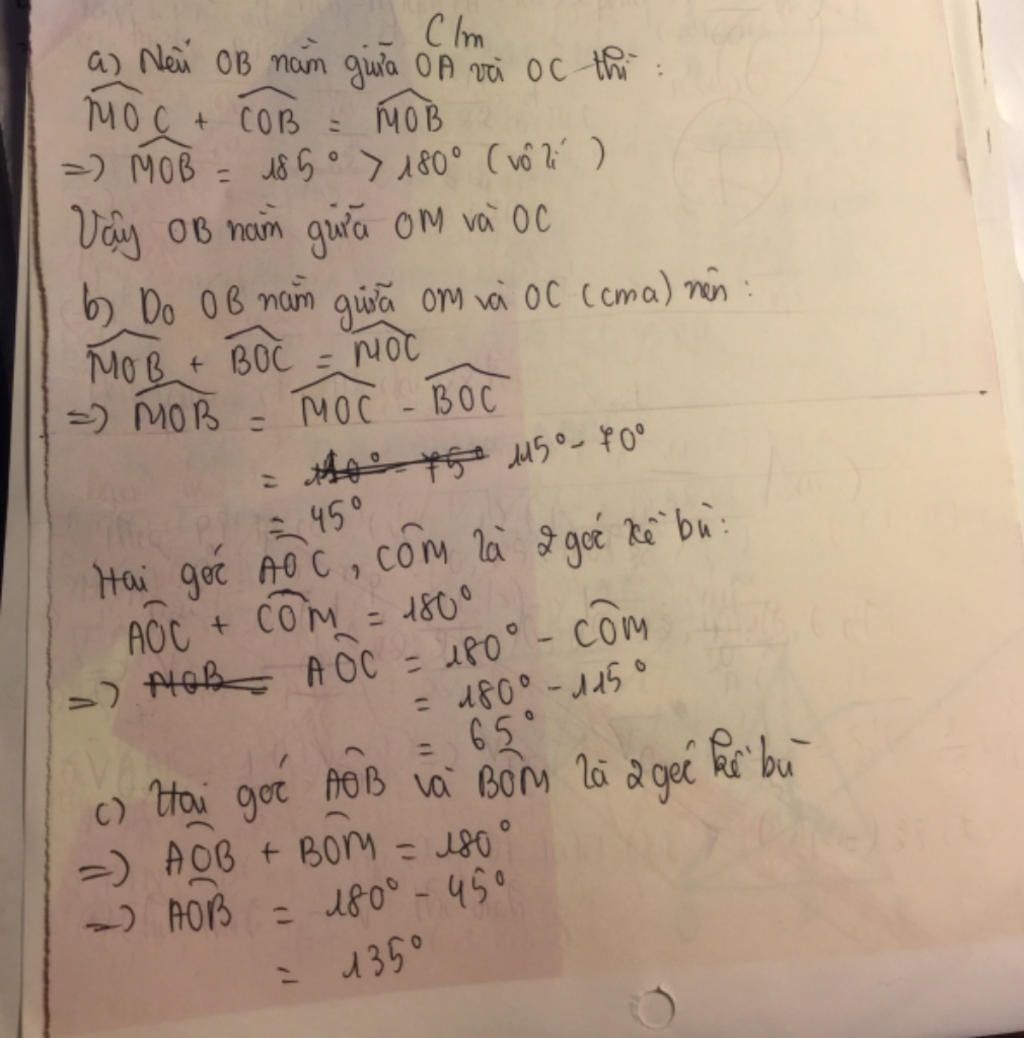 C/m
a) Nếu OB nằm giữa OA và OC thì :
MOC + COB = MOB
=> MOB = 185° > 180° (vô lí)
Vậy OB nằm giữa OM và OC
b) Do OB nằm giữa OM và OC (cma) nên :
MOB + BOC = MOC
=> MOB = MOC - BOC
= 110° - 75° 115° - 70°
= 45°
Hai góc AOC, COM là 2 góc kề bù:
AOC + COM = 180°
=> MOB = AOC = 180° - COM
= 180° - 115°
= 65°
c) Hai góc AOB và BOM là 2 góc kề bù
=> AOB + BOM = 180°
=> AOB = 180° - 45°
= 135°